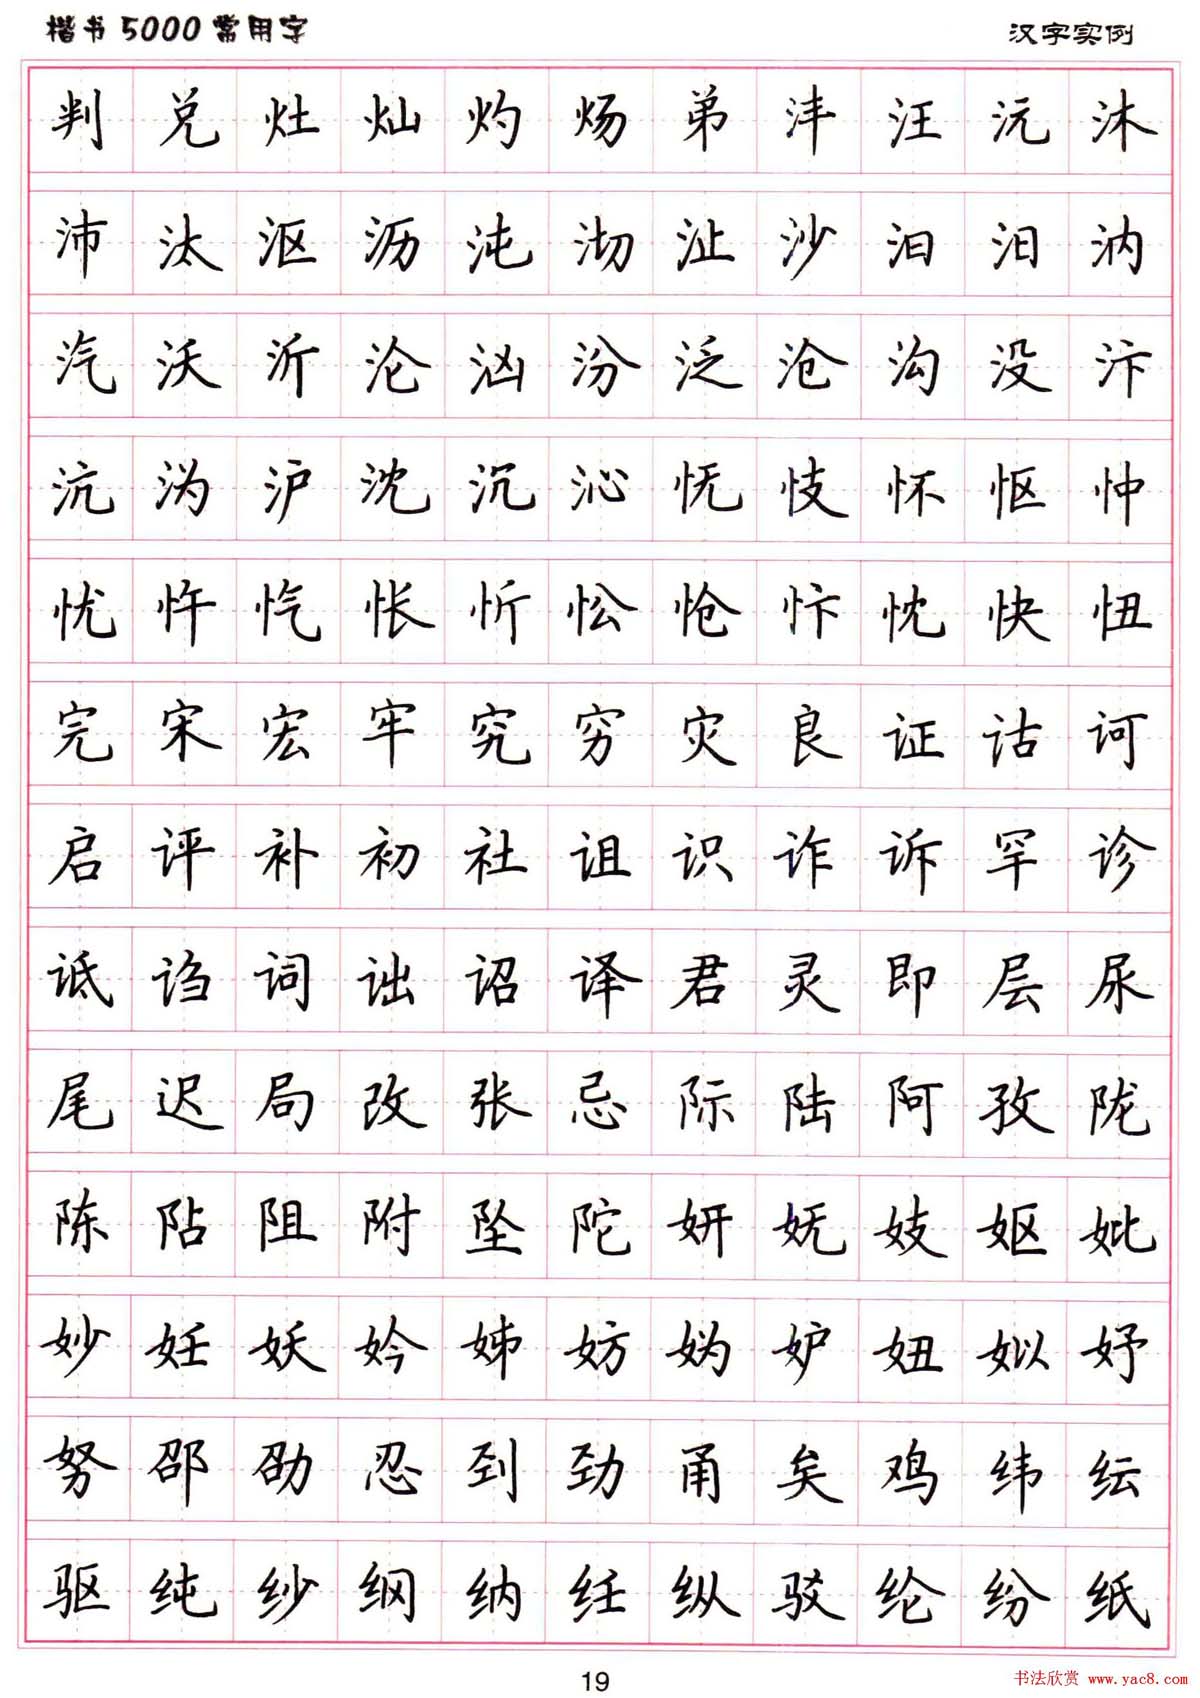 楷书5000常用字 汉字实例
判 兑 灶 灿 灼 炀 弟 沣 汪 沅 沐
沛 汰 沤 沥 沌 沏 沚 沙 汩 汨 汭
汽 沃 沂 沦 汹 汾 泛 沧 沟 没 汴
沆 沩 沪 沈 沉 沁 怃 忮 怀 怄 忡
忧 忤 忾 怅 忻 忪 怆 忭 忱 快 忸
完 宋 宏 牢 究 穷 灾 良 证 诂 诃
启 评 补 初 社 诅 识 诈 诉 罕 诊
诋 诌 词 诎 诏 译 君 灵 即 层 尿
尾 迟 局 改 张 忌 际 陆 阿 孜 陇
陈 阽 阻 附 坠 陀 妍 妩 妓 妪 妣
妙 妊 妖 妗 姊 妨 妫 妒 妞 姒 妤
努 邵 劭 忍 刭 劲 甬 矣 鸡 纬 纭
驱 纯 纱 纲 纳 纴 纵 驳 纶 纷 纸
19
书法欣赏 www.yac8.com